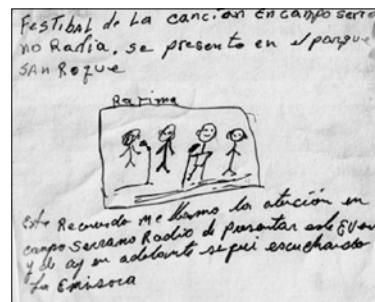 FesTiBAL de La canción En campo serra
no Radia. se presento en el parque
SAN Roque
Este Recuerdo me llamo la atención en
campo Serrano Radio de presentar este Even
y de ay en adelante segui escuchando
La Emisora